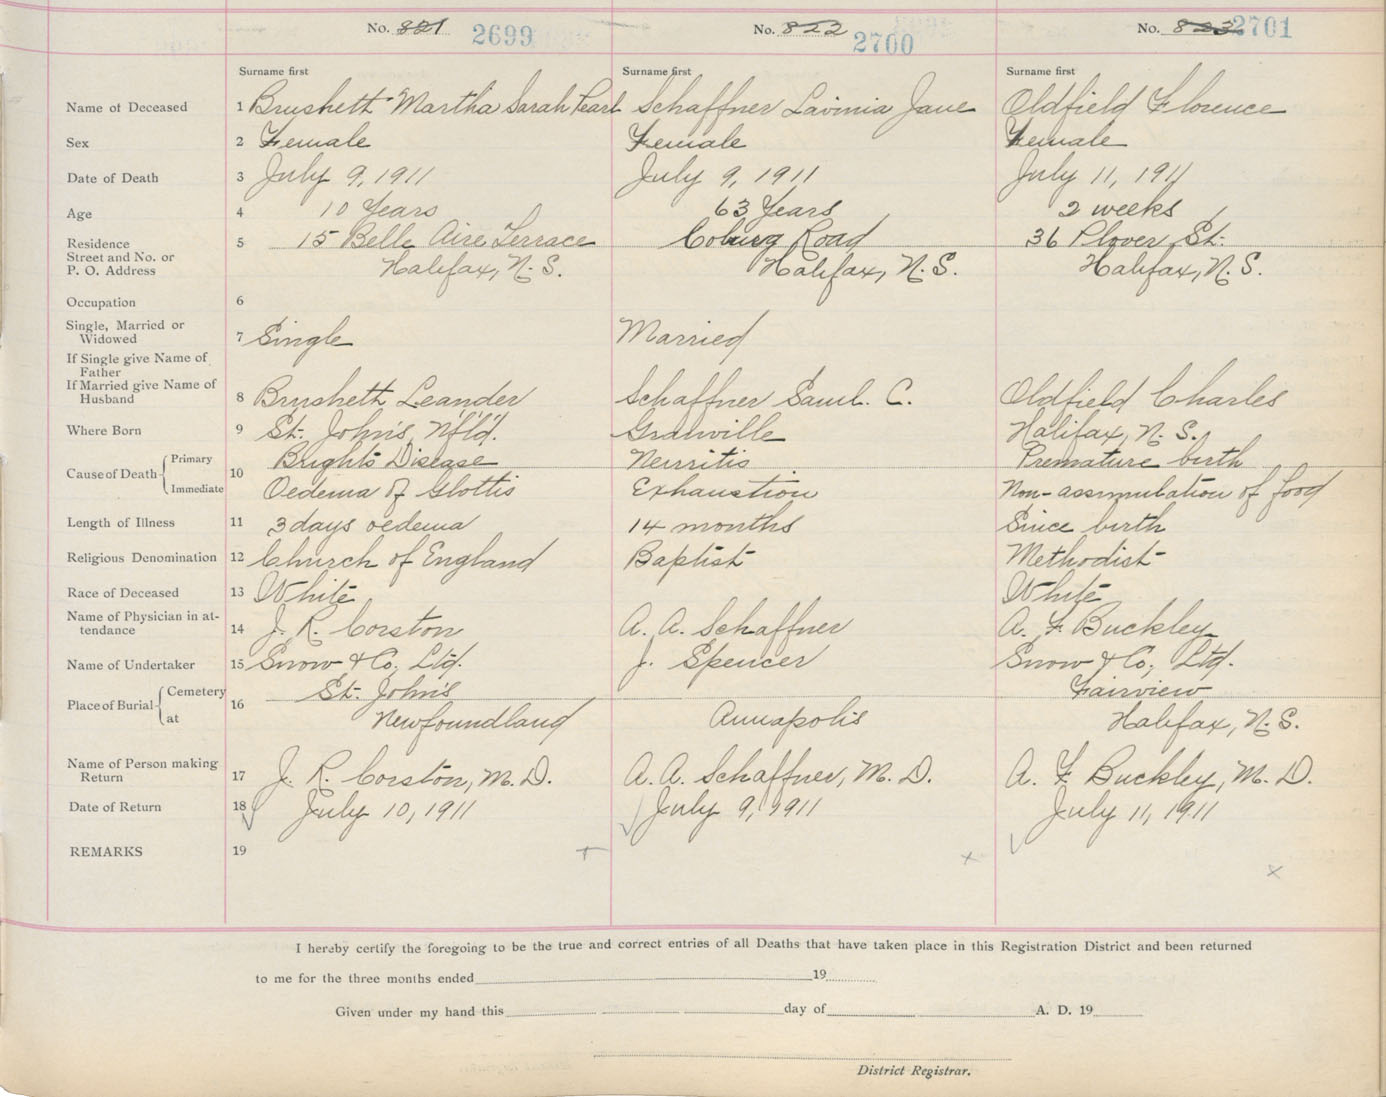 No. 821 2699 No. 822 2700 No. 823 2701
Surname first Surname first Surname first
Name of Deceased 1 Brushett Martha Sarah Pearl Schaffner Lavinia Jane Oldfield Florence
Sex 2 Female Female Female
Date of Death 3 July 9, 1911 July 9, 1911 July 11, 1911
Age 4 10 Years 63 Years 2 weeks
Residence 5 15 Belle Aire Terrace Coburg Road 36 Plover St.
Street and No. or
P. O. Address Halifax, N. S. Halifax, N. S. Halifax, N. S.
Occupation 6
Single, Married or
Widowed 7 Single Married
If Single give Name of
Father
If Married give Name of
Husband 8 Brushett Leander Schaffner Saml. C. Oldfield Charles
Where Born 9 St. John's, Nfld. Granville Halifax, N. S.
Cause of Death 10 Primary Brights Disease Neuritis Premature birth
Immediate Oedema of Glottis Exhaustion Non-assimulation of food
Length of Illness 11 3 days oedema 14 months Since birth
Religious Denomination 12 Church of England Baptist Methodist
Race of Deceased 13 White White
Name of Physician in at-
tendance 14 J. R. Corston A. A. Schaffner A. F. Buckley
Name of Undertaker 15 Snow & Co, Ltd. J. Spencer Snow & Co, Ltd.
Place of Burial 16 Cemetery St. John's Fairview
at Newfoundland Annapolis Halifax, N. S.
Name of Person making
Return 17 J. R. Corston, M. D. A. A. Schaffner, M. D. A. F. Buckley, M. D.
Date of Return 18 July 10, 1911 July 9, 1911 July 11, 1911
REMARKS 19
I hereby certify the foregoing to be the true and correct entries of all Deaths that have taken place in this Registration District and been returned
to me for the three months ended 19
Given under my hand this day of A. D. 19
District Registrar.